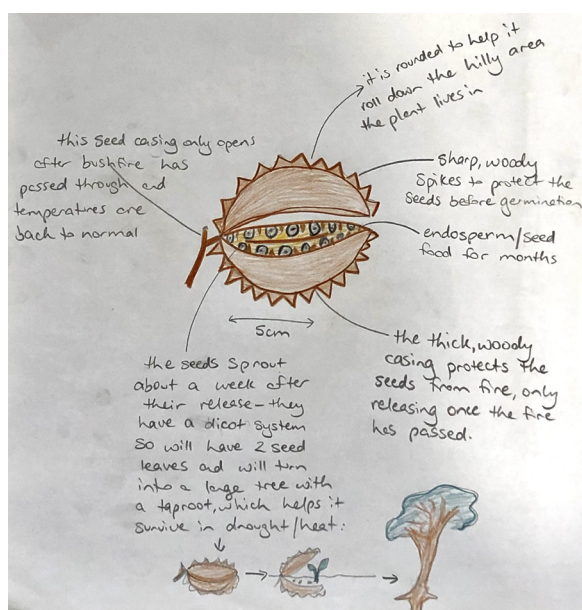 it is rounded to help it
roll down the hilly area
the plant lives in
this seed casing only opens
after bushfire has
passed through and
temperatures are
back to normal
sharp, woody
spikes to protect the
seeds before germination
endosperm/seed
food for months
5cm
the thick, woody
casing protects the
seeds from fire, only
releasing once the fire
has passed.
the seeds sprout
about a week after
their release- they
have a dicot system
so will have 2 seed
leaves and will turn
into a large tree with
a taproot, which helps it
survive in drought/heat.